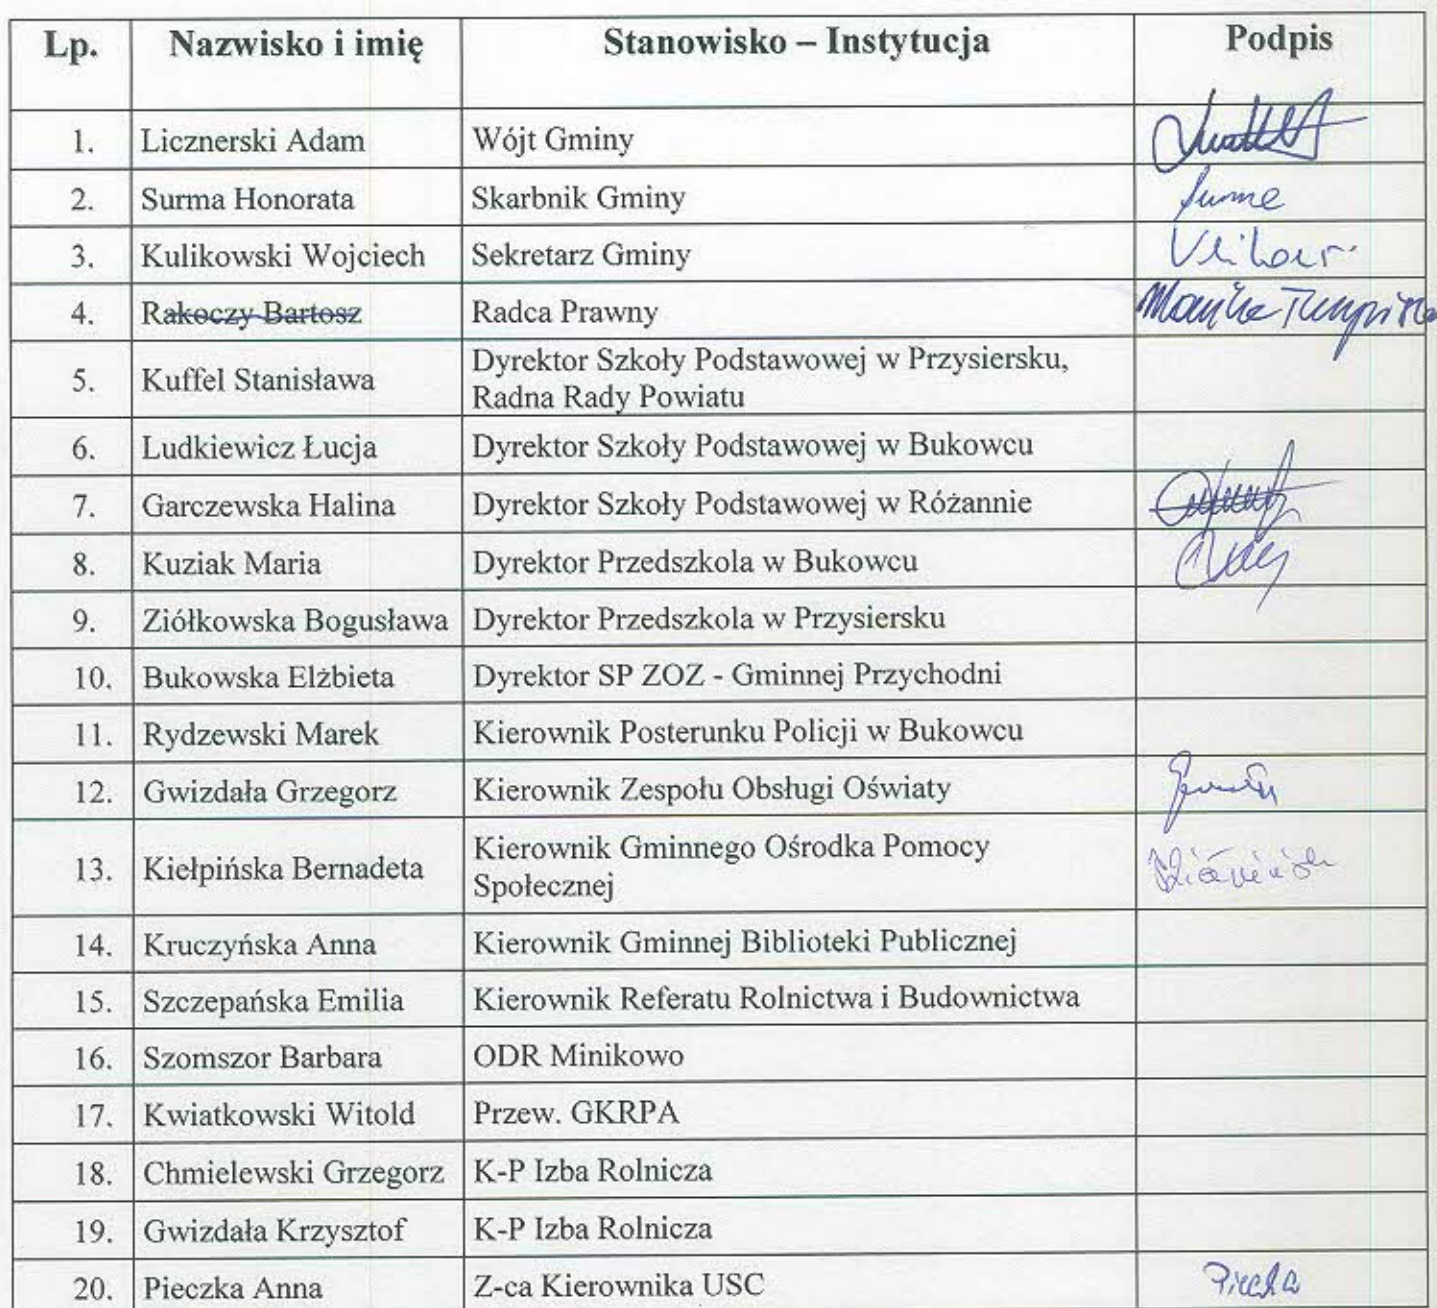 Lp. Nazwisko i imię Stanowisko – Instytucja Podpis
1. Licznerski Adam Wójt Gminy
2. Surma Honorata Skarbnik Gminy
3. Kulikowski Wojciech Sekretarz Gminy
4. Rakoczy Bartosz Radca Prawny
5. Kuffel Stanisława Dyrektor Szkoły Podstawowej w Przysiersku,
Radna Rady Powiatu
6. Ludkiewicz Łucja Dyrektor Szkoły Podstawowej w Bukowcu
7. Garczewska Halina Dyrektor Szkoły Podstawowej w Różannie
8. Kuziak Maria Dyrektor Przedszkola w Bukowcu
9. Ziółkowska Bogusława Dyrektor Przedszkola w Przysiersku
10. Bukowska Elżbieta Dyrektor SP ZOZ - Gminnej Przychodni
11. Rydzewski Marek Kierownik Posterunku Policji w Bukowcu
12. Gwizdała Grzegorz Kierownik Zespołu Obsługi Oświaty
13. Kiełpińska Bernadeta Kierownik Gminnego Ośrodka Pomocy
Społecznej
14. Kruczyńska Anna Kierownik Gminnej Biblioteki Publicznej
15. Szczepańska Emilia Kierownik Referatu Rolnictwa i Budownictwa
16. Szomszor Barbara ODR Minikowo
17. Kwiatkowski Witold Przew. GKRPA
18. Chmielewski Grzegorz K-P Izba Rolnicza
19. Gwizdała Krzysztof K-P Izba Rolnicza
20. Pieczka Anna Z-ca Kierownika USC